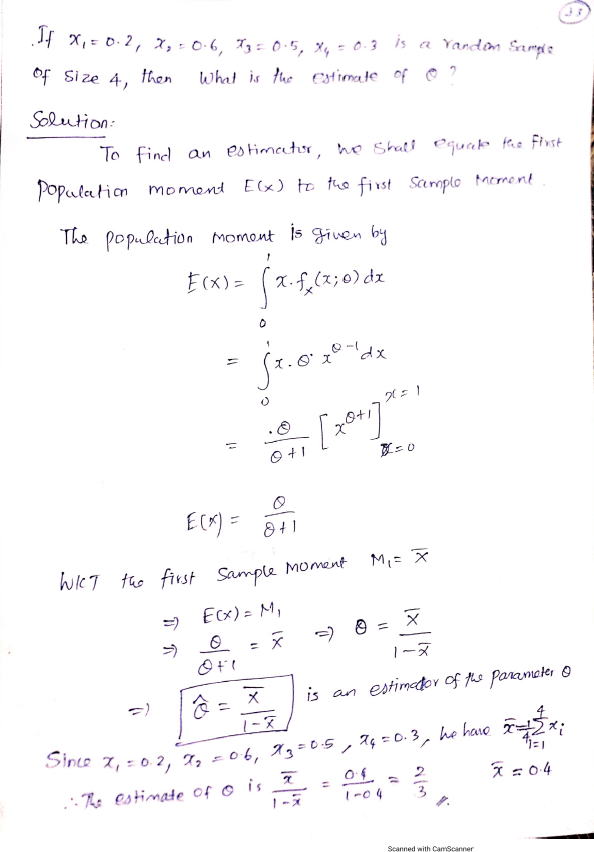 23
If x₁ = 0.2, x₂ = 0.6, x₃ = 0.5, x₄ = 0.3 is a random sample
of size 4, then what is the estimate of θ ?
Solution:
To find an estimator, we shall equate the first
population moment E(x) to the first sample moment.
The population moment is given by
E(X) = ∫₀¹ x. fₓ(x; θ) dx
= ∫₀¹ x. θ· x^(θ-1) dx
= θ/(θ+1) [x^(θ+1)] x=1 x=0
E(X) = θ/(θ+1)
WKT the first sample moment M₁ = x̄
⇒ E(X) = M₁
⇒ θ/(θ+1) = x̄ ⇒ θ = x̄/(1-x̄)
⇒ θ̂ = x̄/(1-x̄) is an estimator of the parameter θ
Since x₁ = 0.2, x₂ = 0.6, x₃ = 0.5, x₄ = 0.3, we have x̄ = 1/4 Σ⁴ᵢ₌₁ xᵢ
x̄ = 0.4
∴ The estimate of θ is x̄/(1-x̄) = 0.4/(1-0.4) = 2/3 //.
Scanned with CamScanner